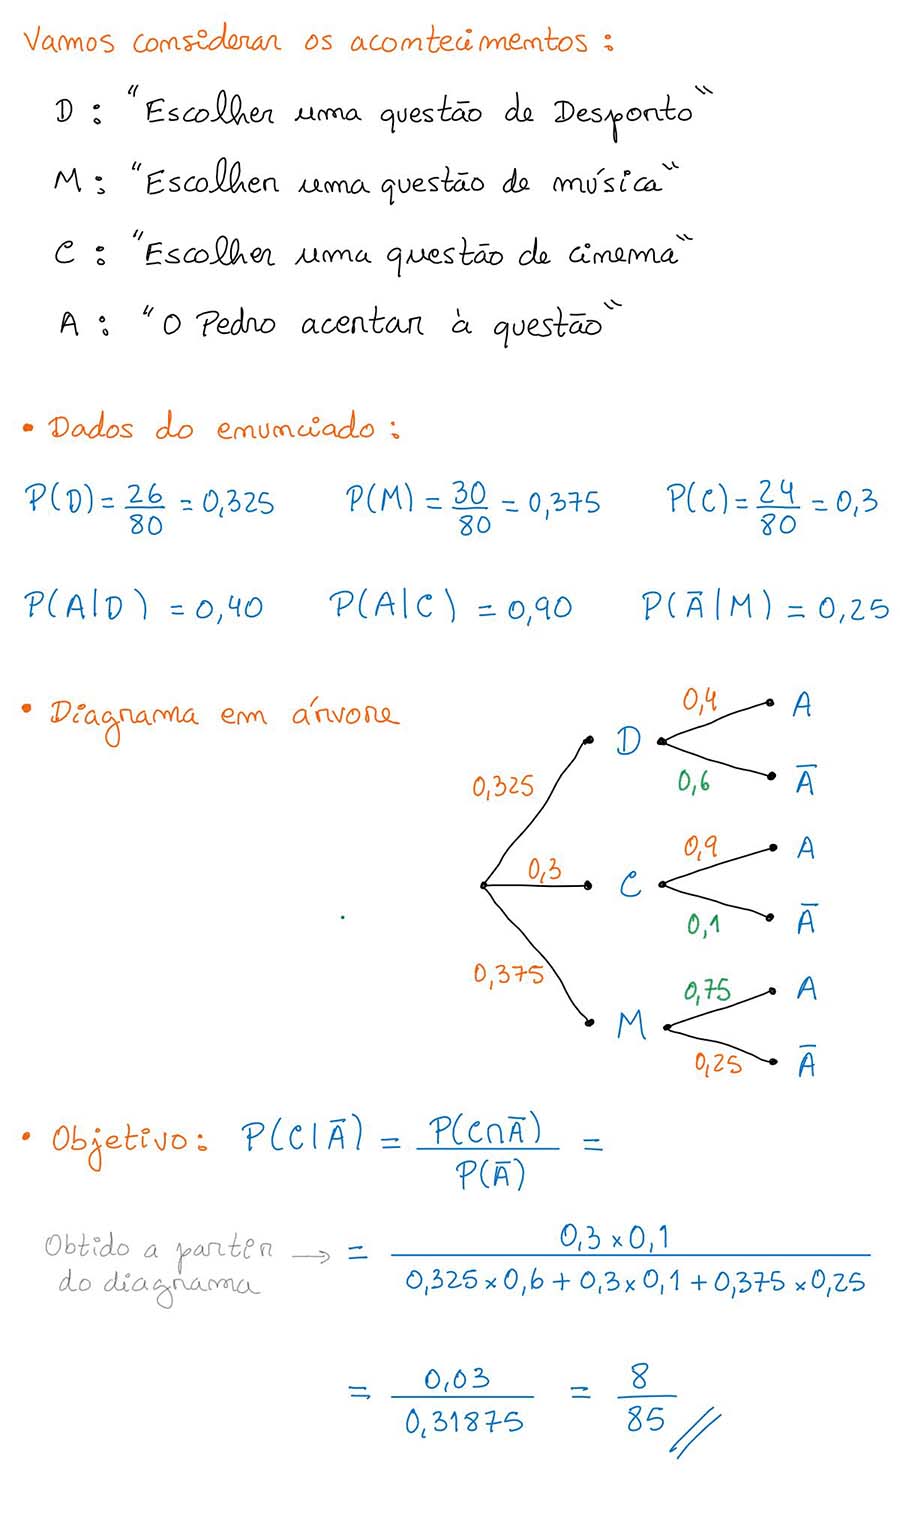 Vamos considerar os acontecimentos :
D : "Escolher uma questão de Desporto"
M : "Escolher uma questão de música"
C : "Escolher uma questão de cinema"
A : "O Pedro acertar à questão"
• Dados do enunciado :
P(D) = 26/80 = 0,325 P(M) = 30/80 = 0,375 P(C) = 24/80 = 0,3
P(A|D) = 0,40 P(A|C) = 0,90 P(Ā|M) = 0,25
• Diagrama em árvore
0,4 A
D
0,325 0,6 Ā
0,9 A
0,3 C
0,1 Ā
0,375 0,75 A
M
0,25 Ā
• Objetivo : P(C|Ā) = P(C∩Ā)/P(Ā) =
Obtido a partir → = 0,3 × 0,1 / 0,325 × 0,6 + 0,3 × 0,1 + 0,375 × 0,25
do diagrama
= 0,03/0,31875 = 8/85 //